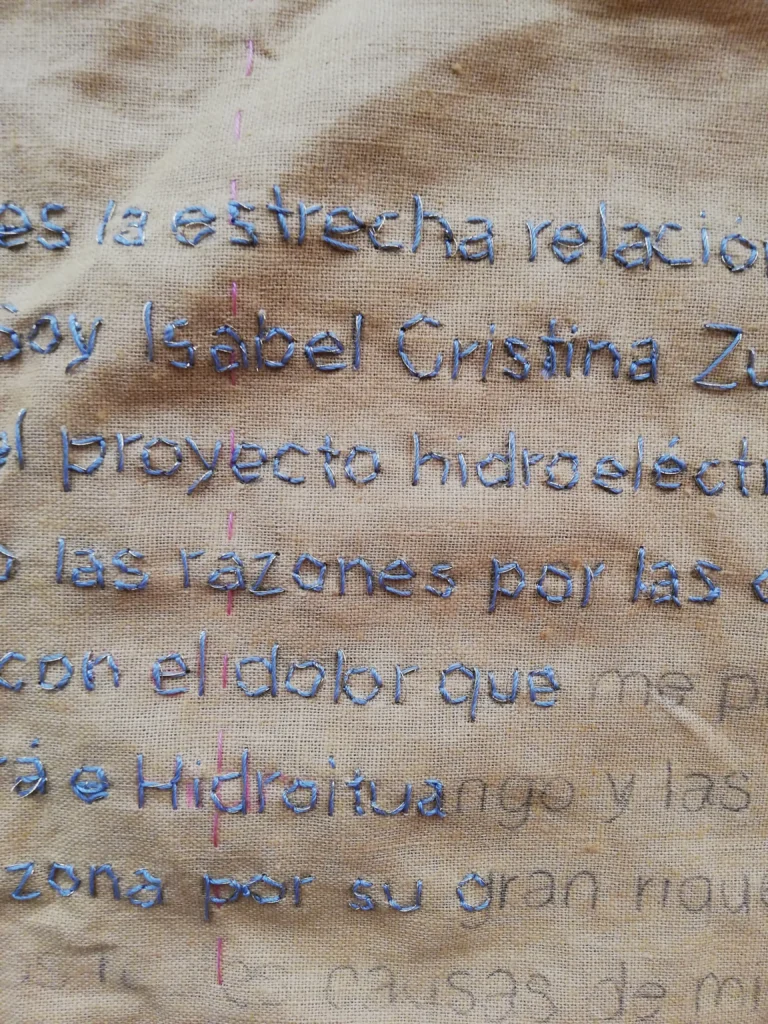 es la estrecha relación
Soy Isabel Cristina Zu
el proyecto hidroeléctr
o las razones por las
con el dolor que me p
rá o Hidroituango y las
zona por su gran rique
causas de mi